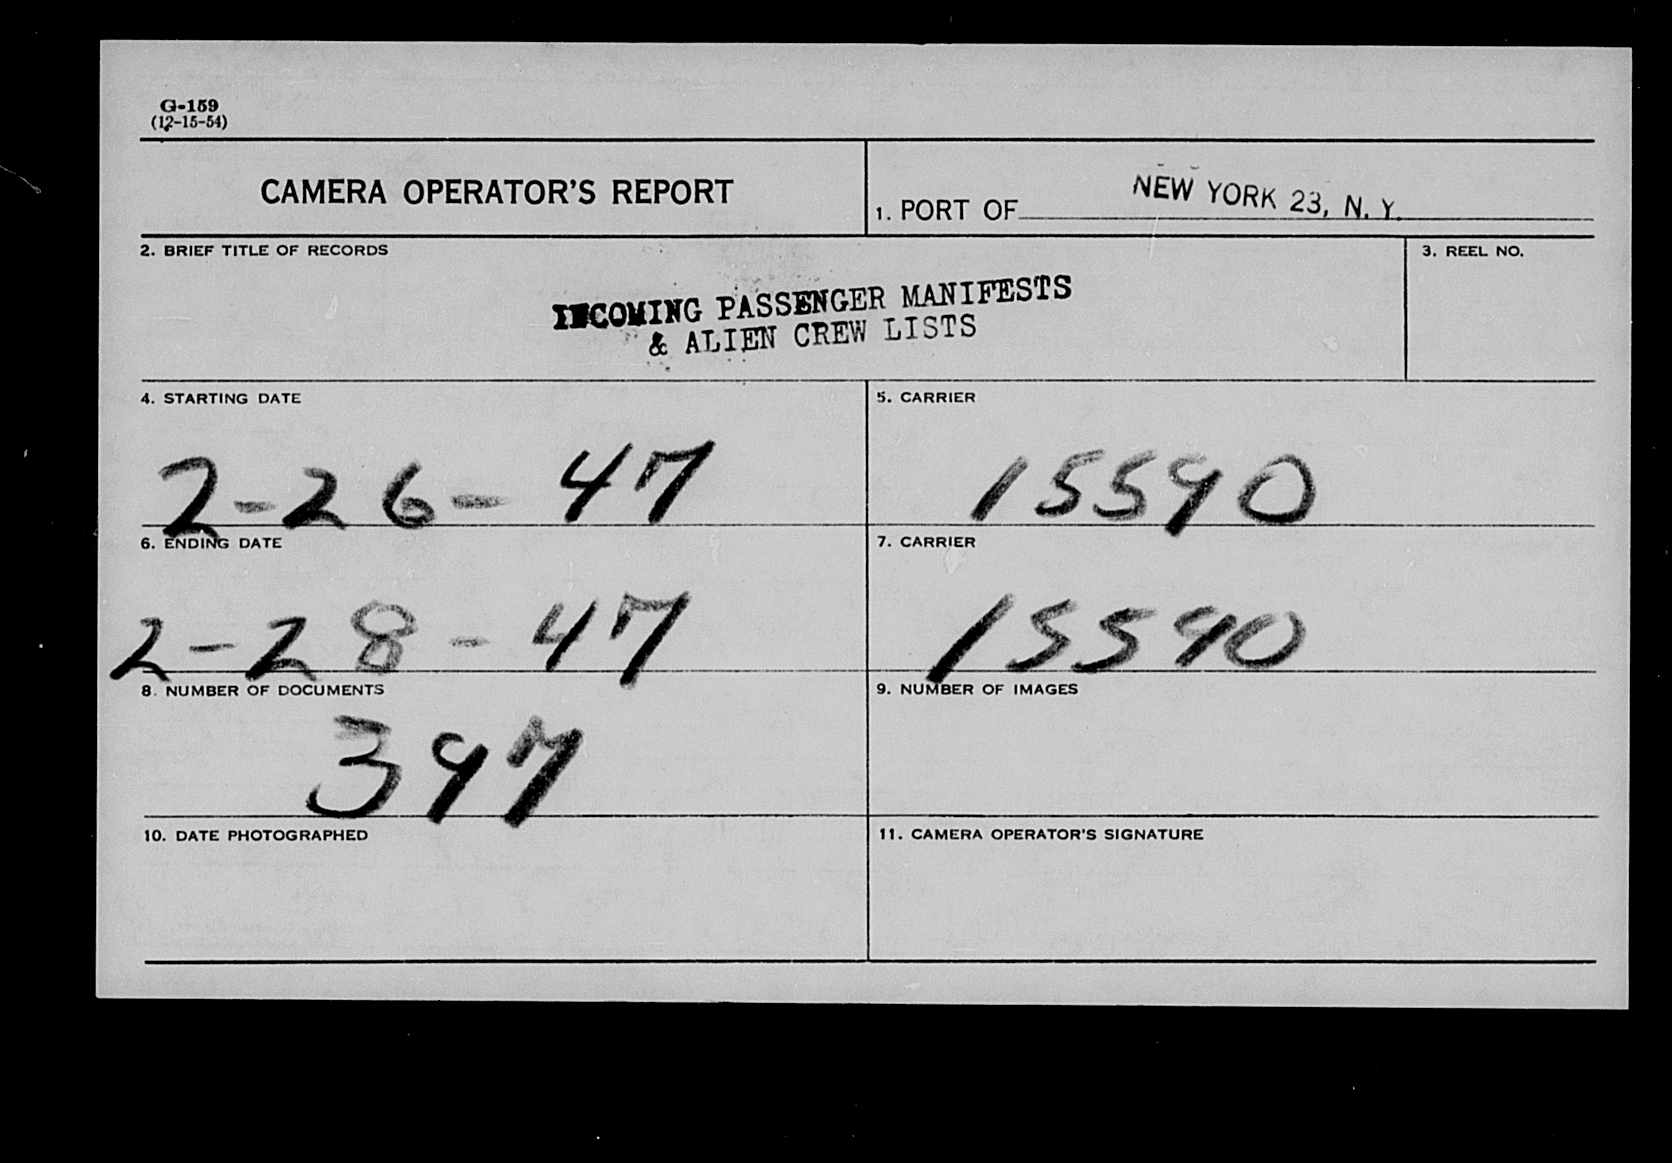 G-159
(12-15-54)
CAMERA OPERATOR'S REPORT
1. PORT OF NEW YORK 23, N. Y.
2. BRIEF TITLE OF RECORDS
3. REEL NO.
INCOMING PASSENGER MANIFESTS
& ALIEN CREW LISTS
4. STARTING DATE
5. CARRIER
2-26-47
15590
6. ENDING DATE
7. CARRIER
2-28-47
15590
8. NUMBER OF DOCUMENTS
9. NUMBER OF IMAGES
397
10. DATE PHOTOGRAPHED
11. CAMERA OPERATOR'S SIGNATURE